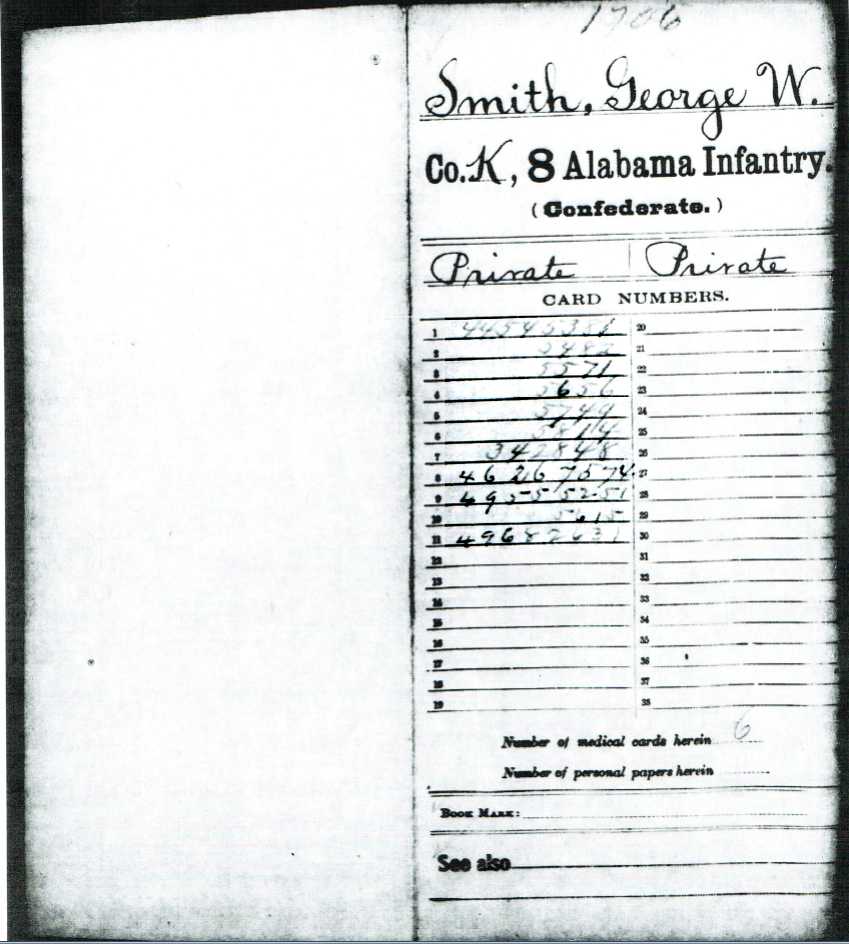 1706
Smith, George W.
Co. K, 8 Alabama Infantry.
(Confederate.)
Private | Private
CARD NUMBERS.
1 44545381 20
2 5482 21
3 5571 22
4 5656 23
5 5749 24
6 5814 25
7 342848 26
8 46267574 27
9 49555251 28
10 5615 29
11 49682631 30
12 31
13 32
14 33
15 34
16 35
17 36
18 37
19 38
Number of medical cards herein 6
Number of personal papers herein
BOOK MARK:
See also